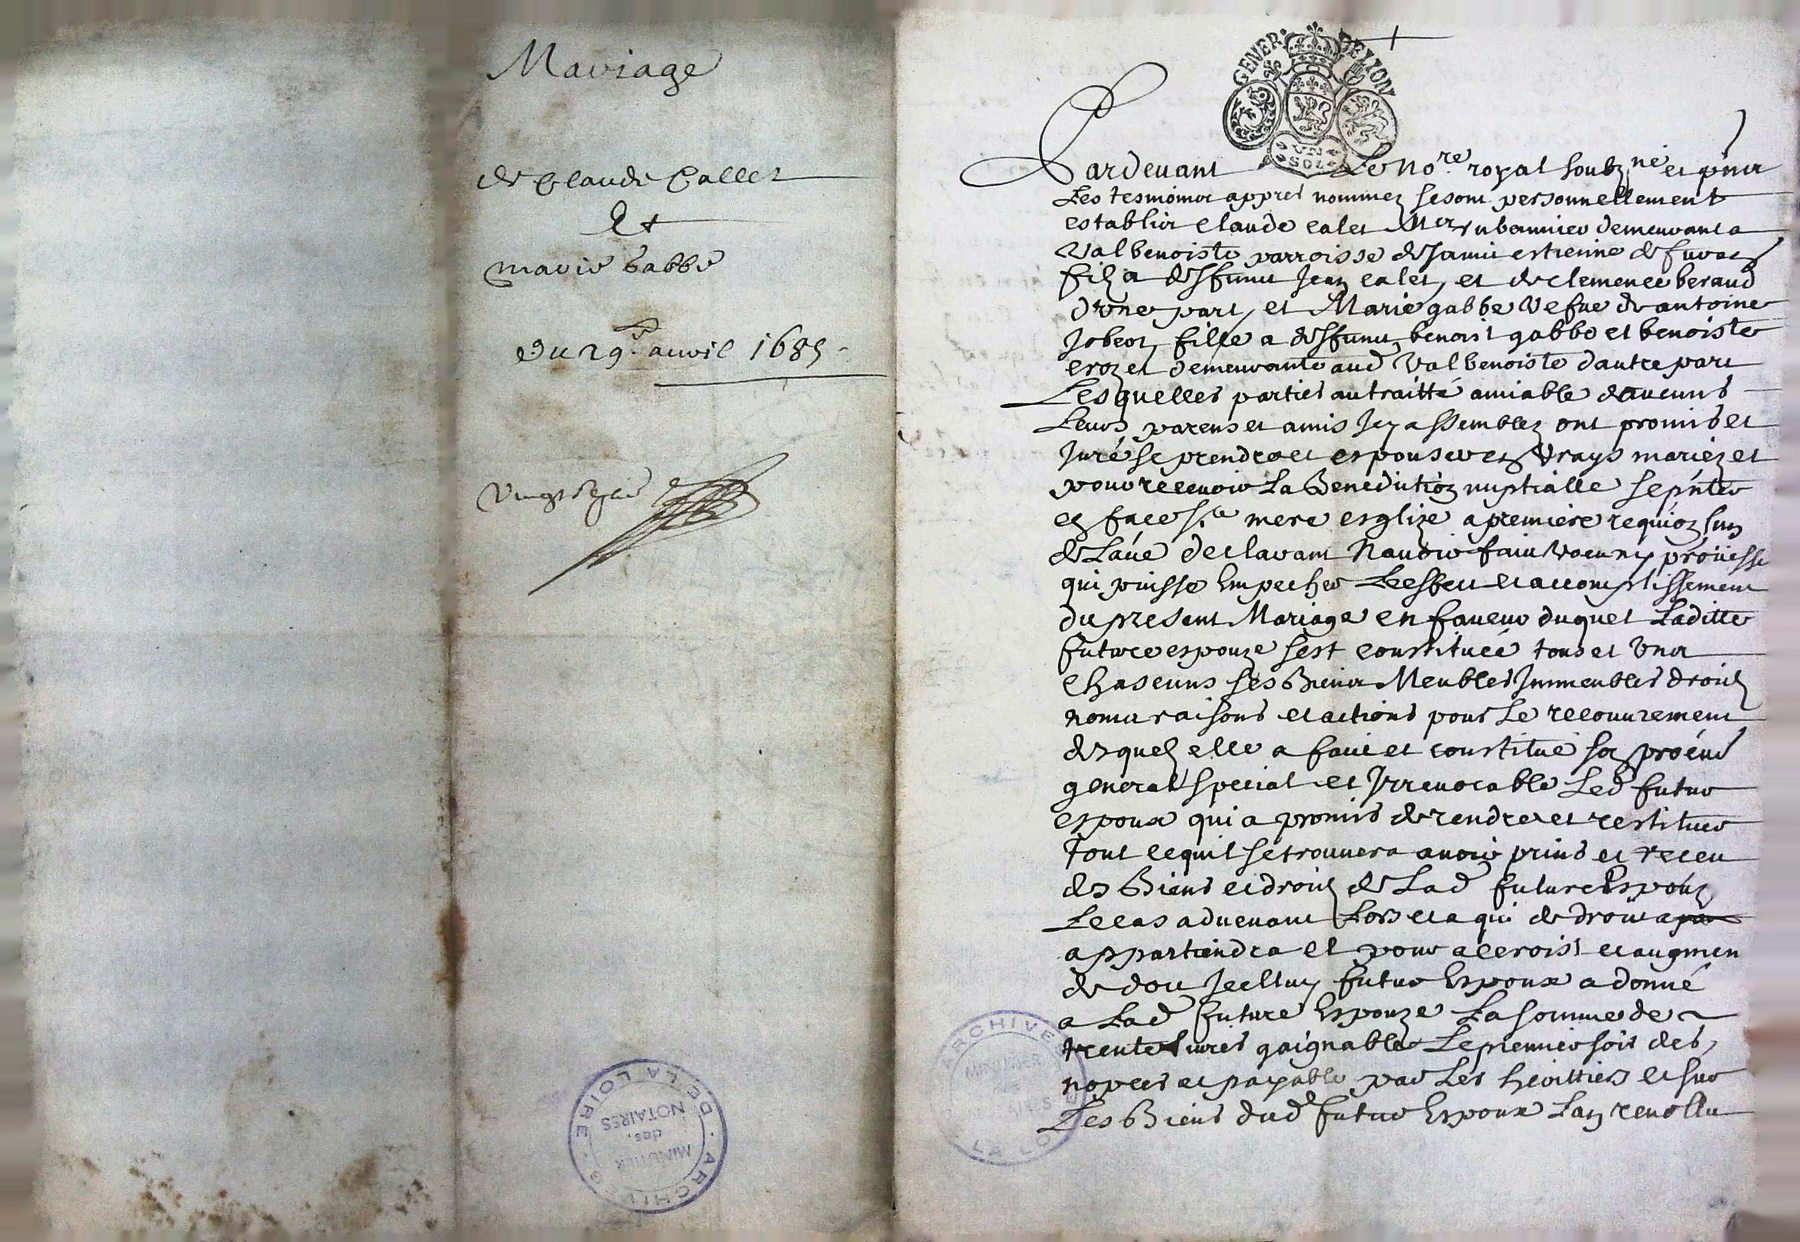 Mariage
de Claude Callet
Et
marie Gabbe
Du 29e. avril 1685
GENER. DE LYON
UN SOL
Pardevant Le No.re royal soubz.né et pñts
Les tesmoins appres nommez se sont personnellement
establis Claude Calet Mre rubannier demeurant a
Valbenoiste parroisse de Saint estienne de furans
filz a deffunt Jean Calet, et de Clemence beraud
d'vne part, et Marie gabbe vefue de antoine
fille a deffunt benoist gabbe et benoiste
crozet demeurante aud Valbenoiste d'autre part
Lesquelles parties au traitté amiable d'aucuns
Leurs parens et amis Icy assemblez ont promis et
Juré se prendre et espouser en vrays mariez et
pour recevoir La Benediction nuptialle se pñter
en face Ste mere esglize a premiere requion Lun
de L'au̅e declarant N'auoir faict promesse
qui puisse Empecher L'effect et accomplissement
du present Mariage en faueur duquel Laditte
future espouze s'est constituée tous et vns
Chascuns ses Biens Meubles Immeubles droictz
noms raisons et actions pour Le recouurement
desquelz elle a faict et constitué son procur
general special et Irreuocable Led futur
espoux qui a promis de rendre et restituer
Tout ce quil se trouuera auoir prins et receu
des Biens et droictz de Lad future Espouze
Le cas aduenant Lors et a qui de droict
appartiendra et pour acroist et augmen
de dot Icelluy futur Espoux a donné
a Lad future Espouze La somme de
trente liures gaignable Le premier soir des
nopces et payable par Les heritiers et sur
Les Biens dud futur Espoux L'an reuollu
ARCHIVES DE LA LOIRE
MINUTIER des NOTAIRES
ARCHIVES
LA LO